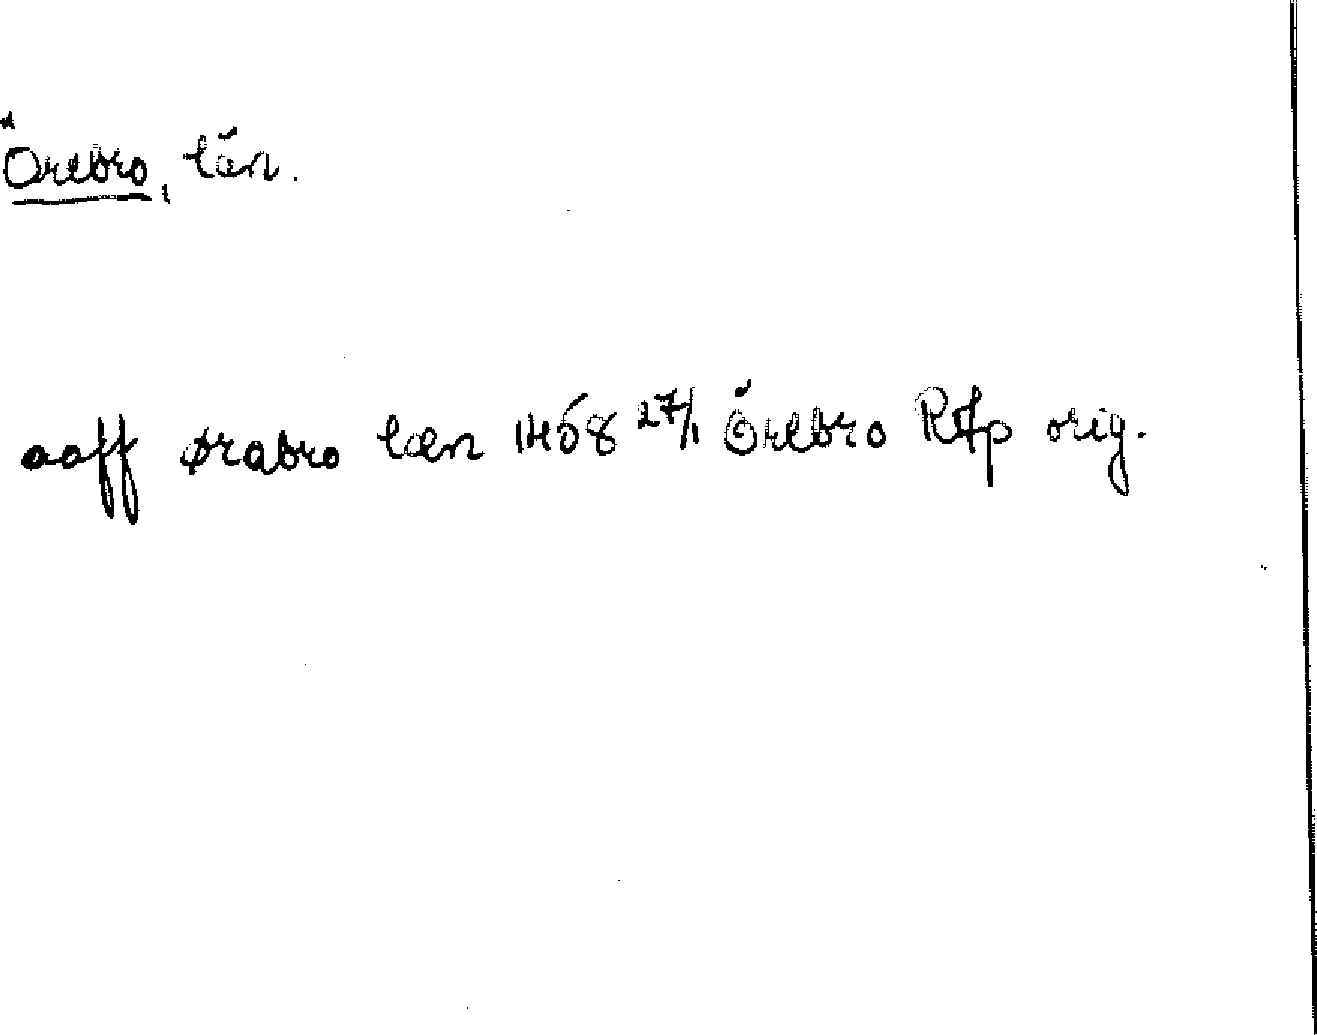 Örebro, län.
aaff ørabro læn 1468 27/1 Örebro RAp orig.